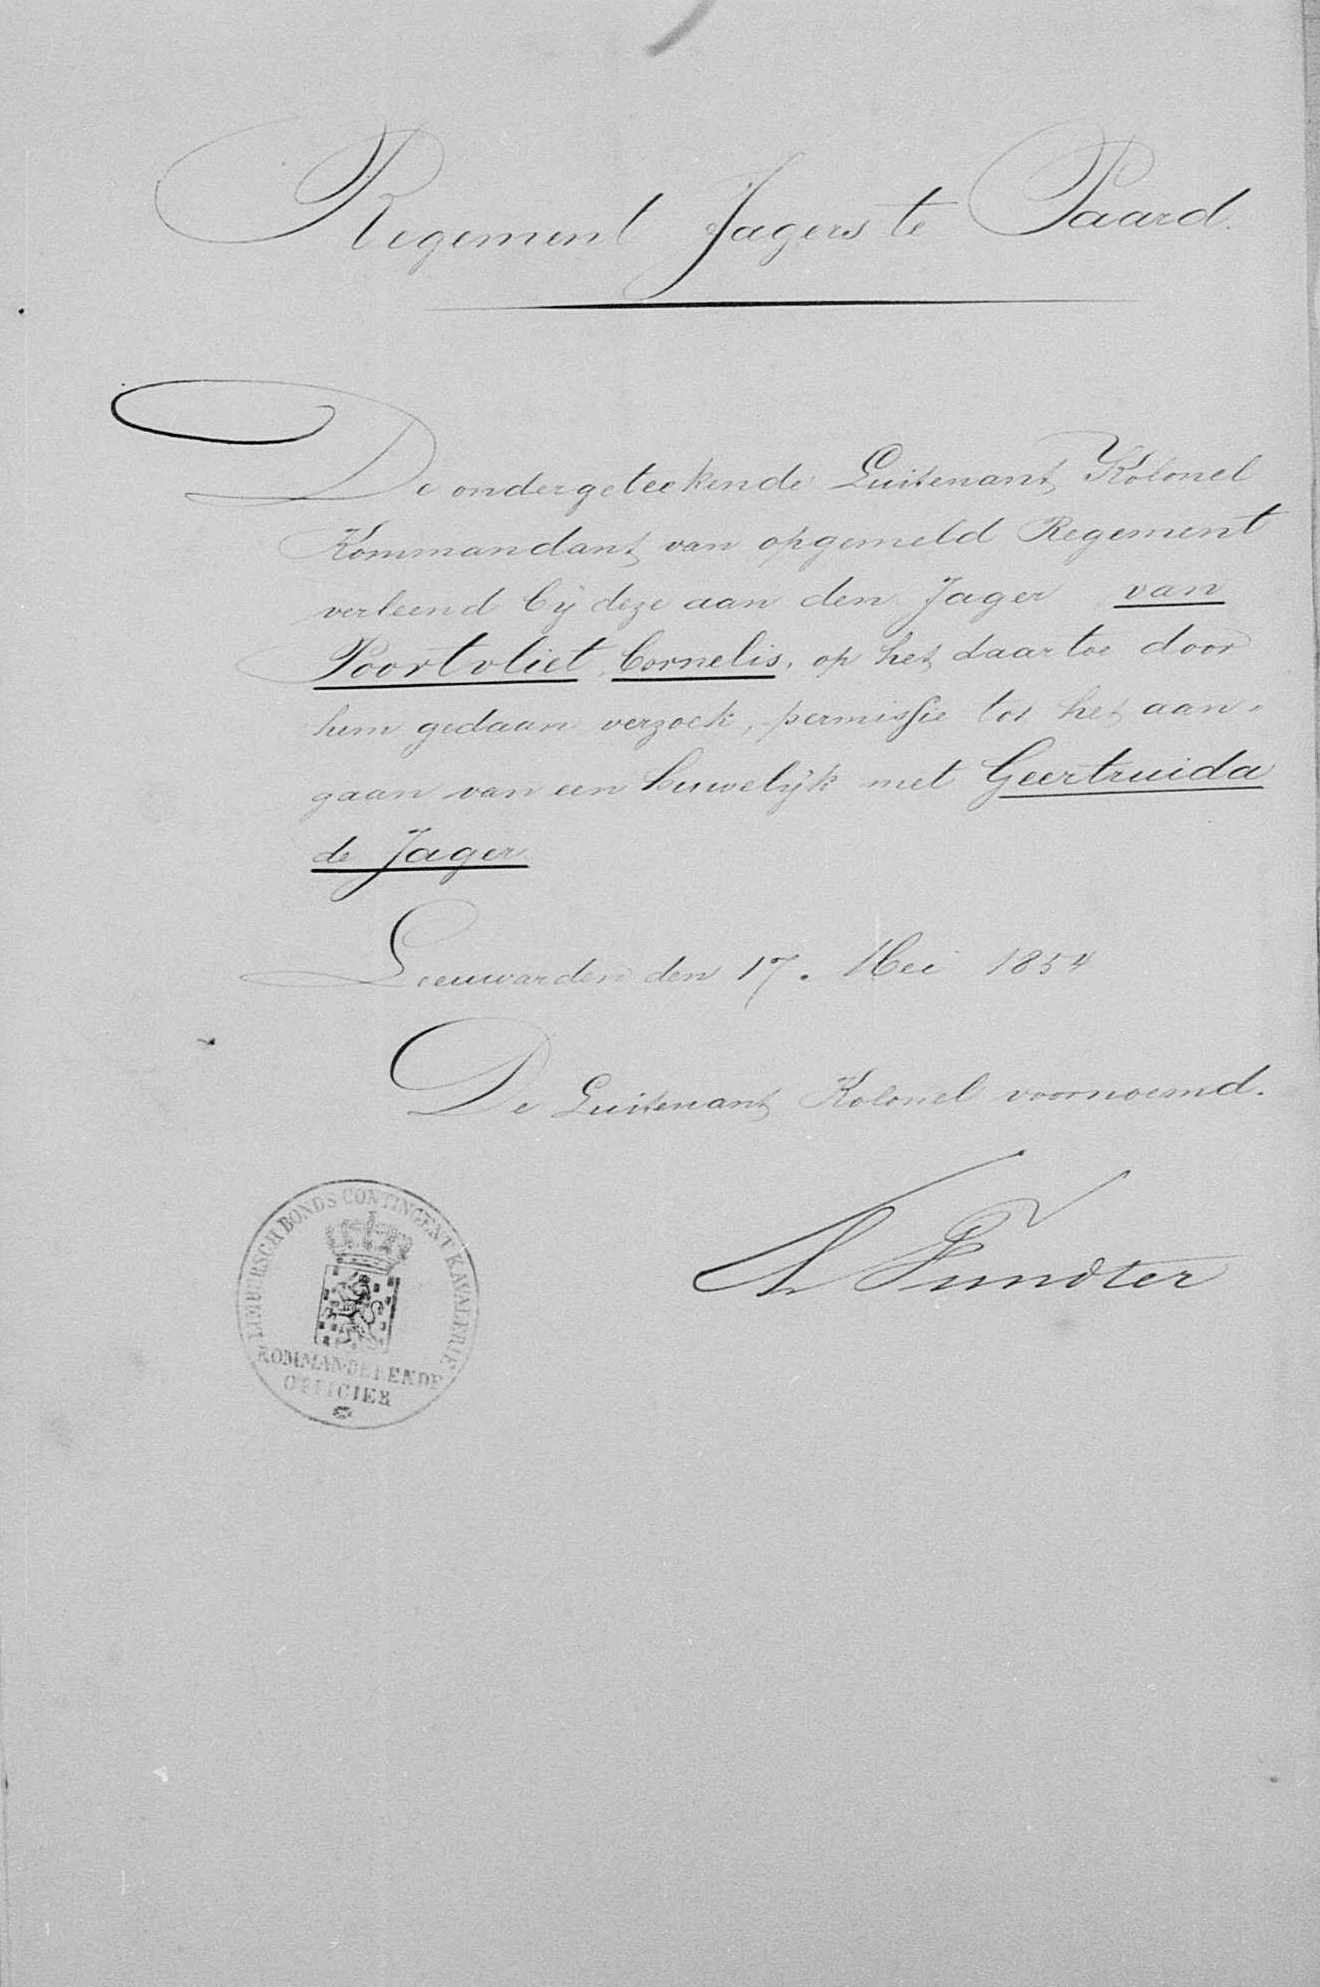 Regement Jagers te Paard.
De ondergeteekende Luitenant Kolonel
Kommandant van opgemeld Regement
verleend bij deze aan den Jager van
Poortvliet, Cornelis, op het daartoe door
hem gedaan verzoek, permissie tot het aan-
gaan van een huwelijk met Geertruida
de Jager
Leeuwarden den 17. Mei 1854
De Luitenant Kolonel voornoemd.
LIMBURSCH BONDS CONTINGENT KAVALERIE
KOMMANDEERENDE
OFFICIER